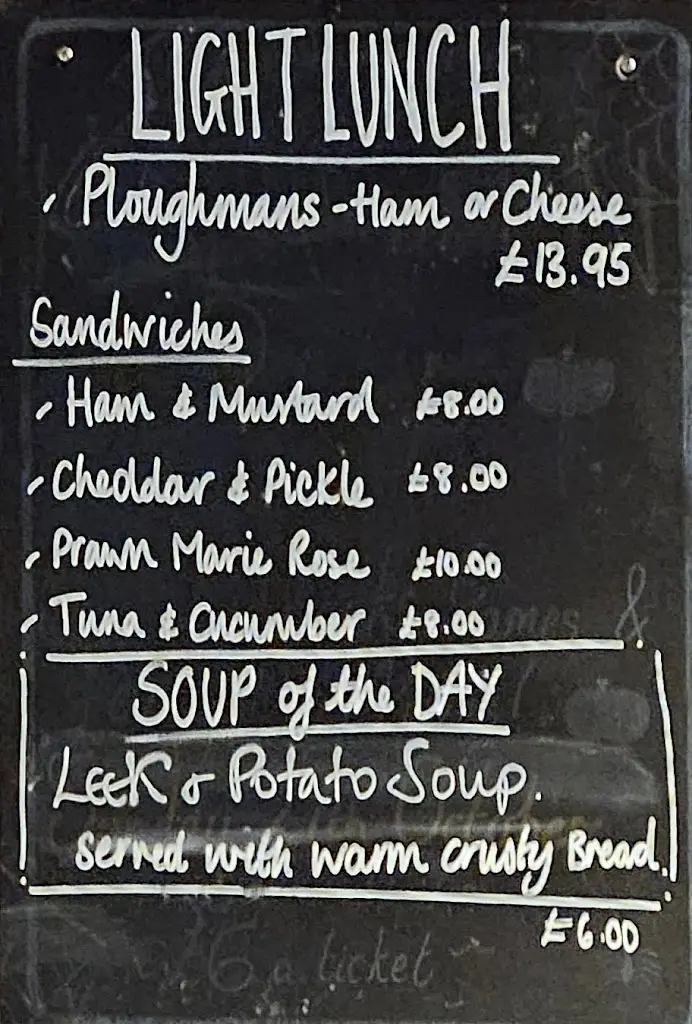 LIGHT LUNCH
Ploughmans - Ham or Cheese
£13.95
Sandwiches
Ham & Mustard £8.00
Cheddar & Pickle £8.00
Prawn Marie Rose £10.00
Tuna & Cucumber £8.00
&
SOUP of the DAY
Leek & Potato Soup.
served with warm crusty Bread.
£6.00
a ticket